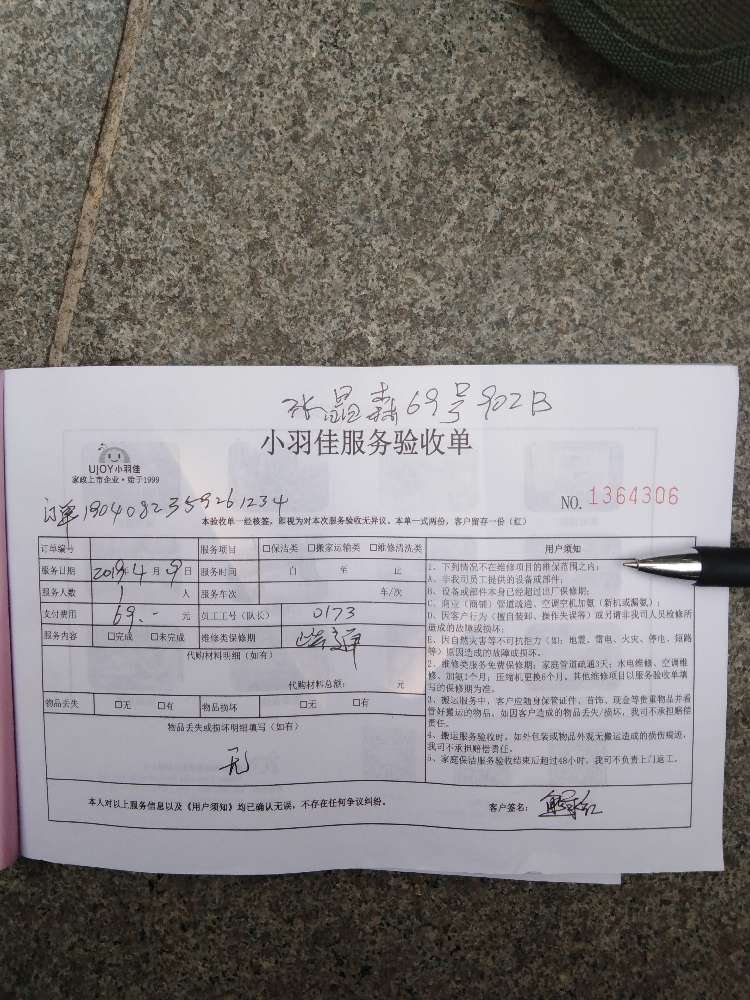 张晶森69号902B
小羽佳服务验收单
UJOY小羽佳
家政上市企业·始于1999
NO. 1364306
订单1904082359261234
本验收单一经核签，即视为对本次服务验收无异议。本单一式两份，客户留存一份（红）
订单编号 服务项目 □保洁类 □搬家运输类 □维修清洗类
服务日期 2019年4月9日 服务时间 自 至 止
服务人数 1人 服务车次 车/次
支付费用 69.- 元 员工工号（队长） 0173
服务内容 □完成 □未完成 维修类保修期
代购材料明细（如有）
代购材料总额： 元
物品丢失 □无 □有 物品损坏 □无 □有
物品丢失或损坏明细填写（如有）
无
用户须知
1、下列情况不在维修项目的维保范围之内：
A、非我司员工提供的设备或部件；
B、设备或部件本身已经超过出厂保修期；
C、商业（商铺）管道疏通、空调空机加氨（新机或漏氨）；
D、因客户行为（擅自装卸、操作失误等）或另请非我司人员检修所
造成的故障或损坏；
E、因自然灾害等不可抗拒力（如：地震、雷电、火灾、停电、短路
等）原因造成的故障或损坏。
2、维修类服务免费保修期：家庭管道疏通3天；水电维修、空调维
修、加氨1个月；压缩机更换6个月。其他维修项目以服务验收单填
写的保修期为准。
3、搬运服务中，客户应随身保管证件、首饰、现金等贵重物品并看
管好搬运的物品，如因客户造成的物品丢失/损坏，我司不承担赔偿
责任。
4、搬运服务验收时，如外包装或物品外观无搬运造成的损伤痕迹，
我司不承担赔偿责任。
5、家庭保洁服务验收结束后超过48小时，我司不负责上门返工。
本人对以上服务信息以及《用户须知》均已确认无误，不存在任何争议纠纷。
客户签名：